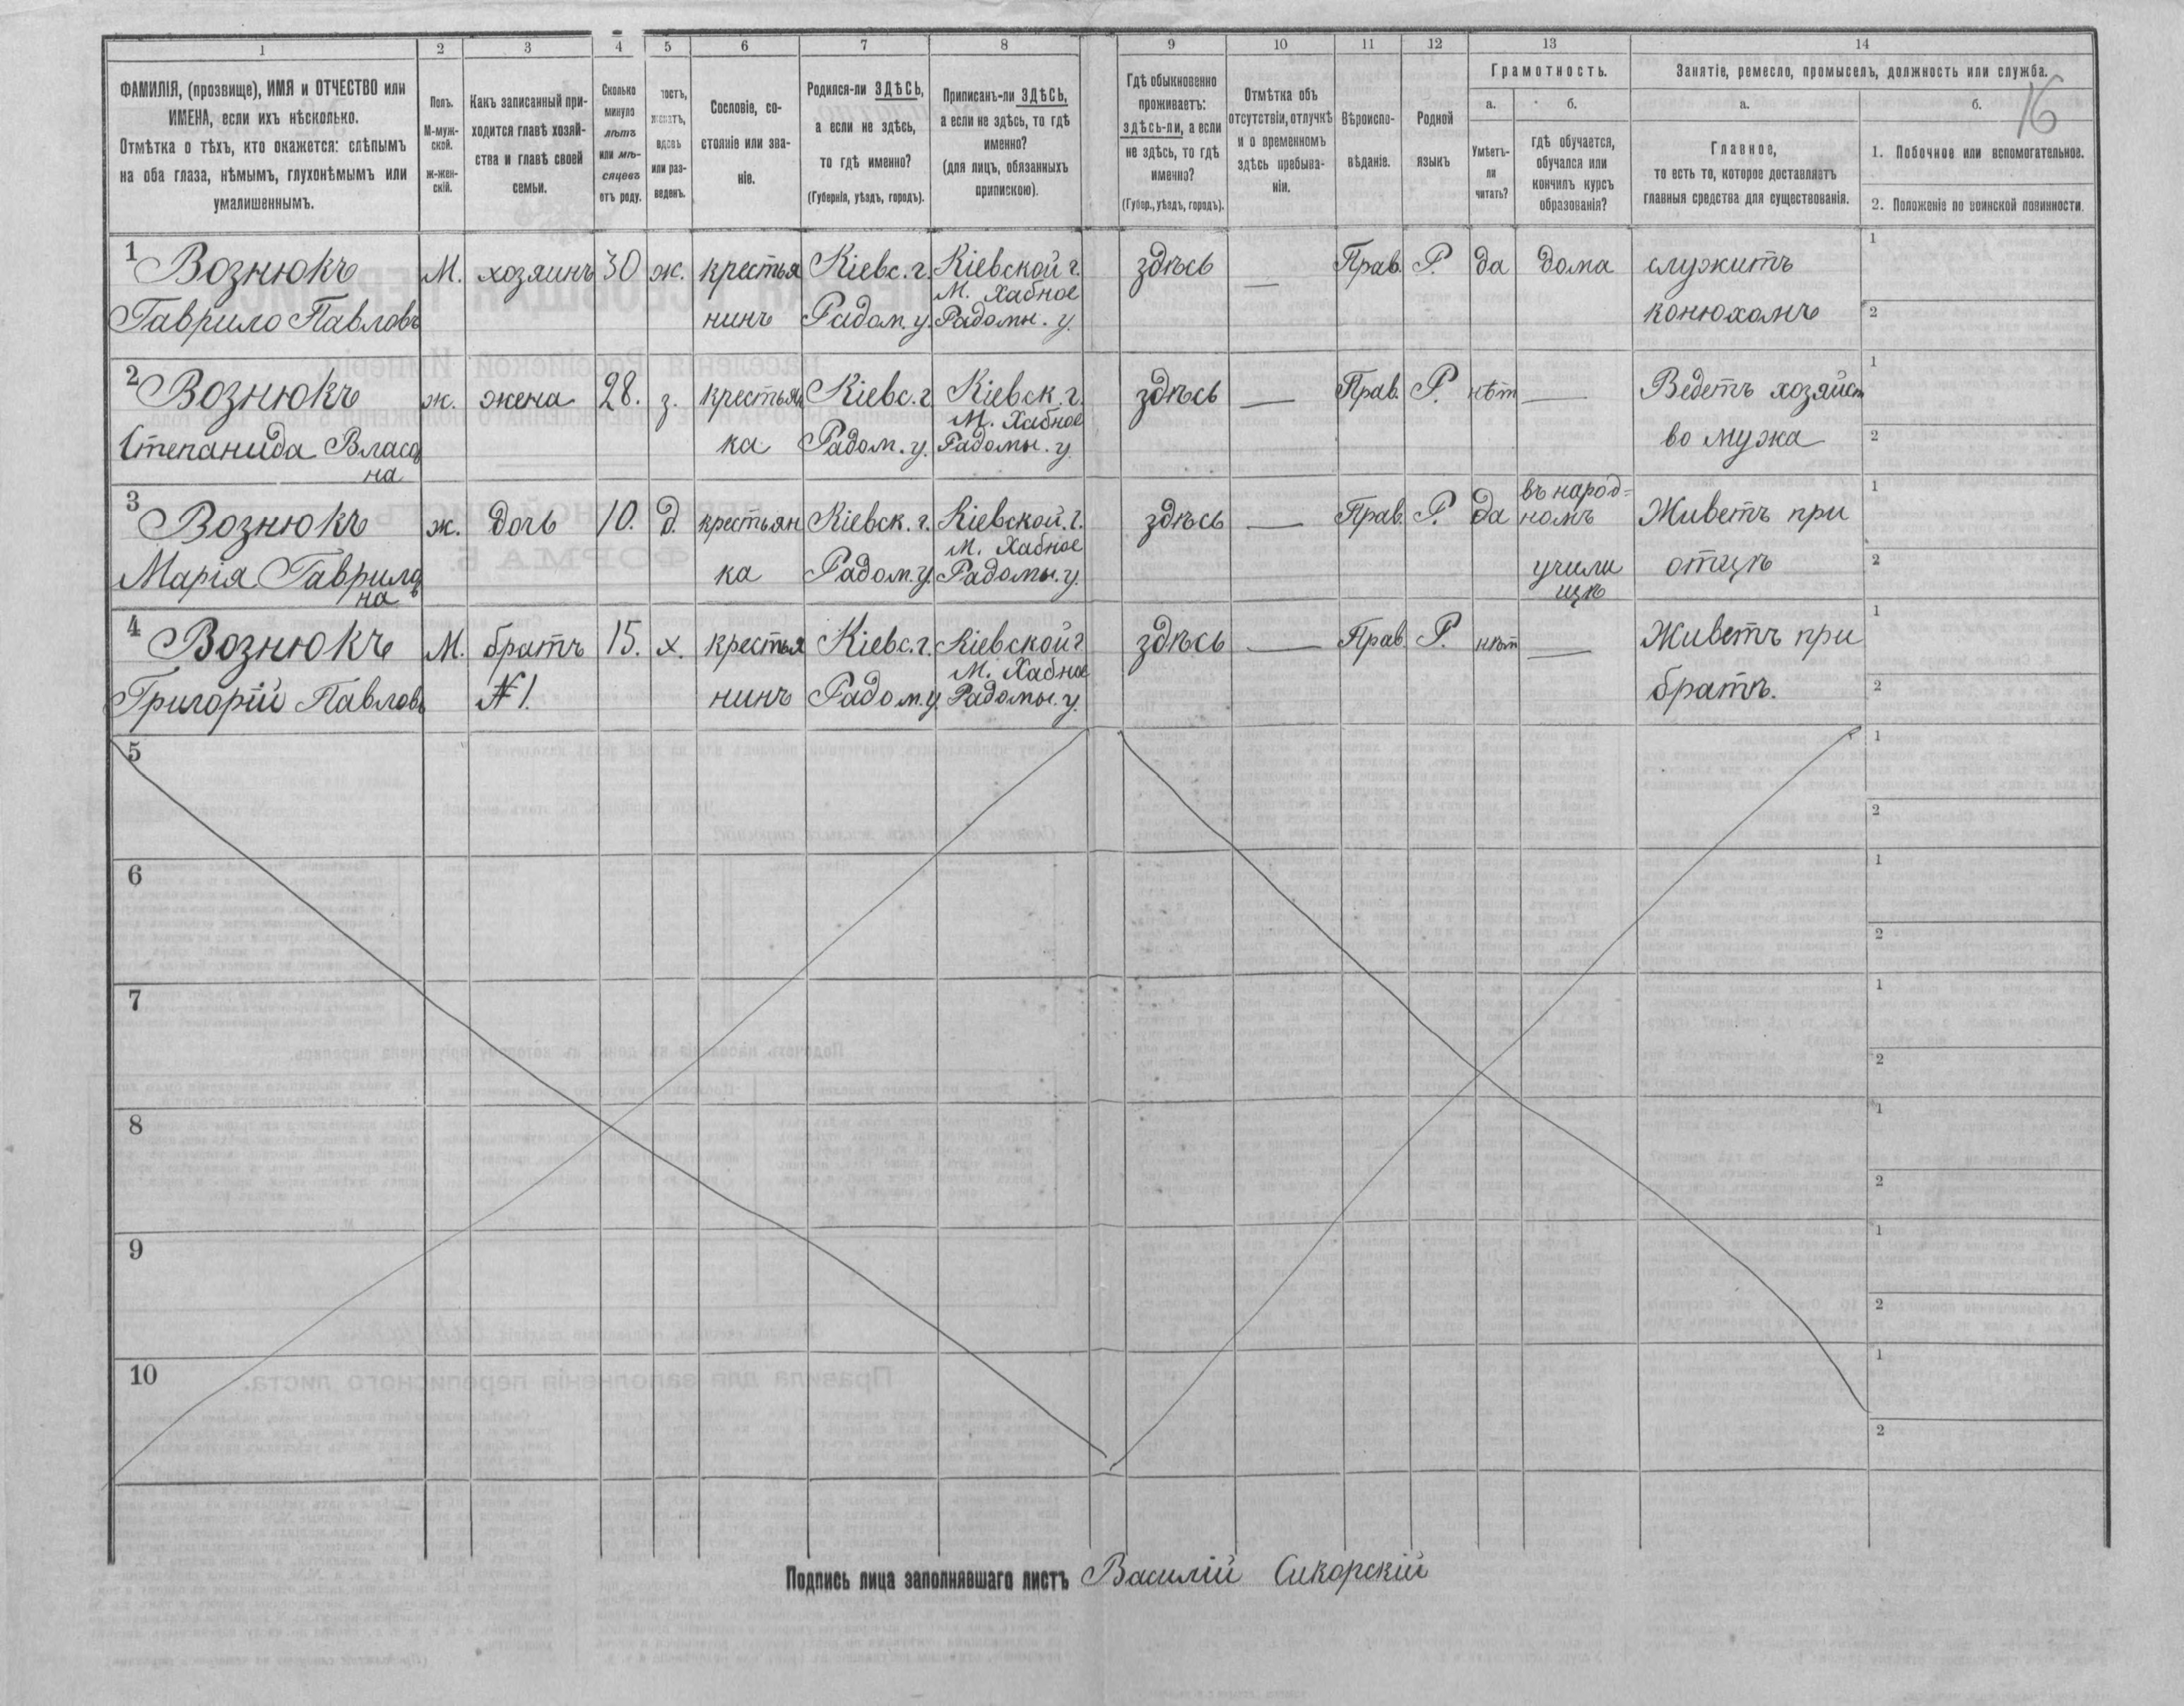 1 2 3 4 5 6 7 8 9 10 11 12 13 14
16
ФАМИЛІЯ, (прозвище), ИМЯ и ОТЧЕСТВО или
ИМЕНА, если ихъ нѣсколько.
Отмѣтка о тѣхъ, кто окажется: слѣпымъ
на оба глаза, нѣмымъ, глухонѣмымъ или
умалишеннымъ.
Полъ.
М-муж-
ской.
ж-жен-
скій.
Какъ записанный при-
ходится главѣ хозяй-
ства и главѣ своей
семьи.
Сколько
минуло
лѣтъ
или мѣ-
сяцевъ
отъ роду.
лостъ,
женатъ,
вдовъ
или раз-
веденъ.
Сословіе, со-
стояніе или зва-
ніе.
Родился-ли ЗДѢСЬ,
а если не здѣсь,
то гдѣ именно?
(Губернія, уѣздъ, городъ).
Приписанъ-ли ЗДѢСЬ,
а если не здѣсь, то гдѣ
именно?
(для лицъ, обязанныхъ
припискою).
Гдѣ обыкновенно
проживаетъ:
здѣсь-ли, а если
не здѣсь, то гдѣ
именно?
(Губер., уѣздъ, городъ).
Отмѣтка объ
отсутствіи, отлучкѣ
и о временномъ
здѣсь пребыва-
ніи.
Вѣроиспо-
вѣданіе.
Родной
языкъ
Грамотность.
а.
Умѣетъ-
ли
читать?
б.
гдѣ обучается,
обучался или
кончилъ курсъ
образованія?
Занятіе, ремесло, промыселъ, должность или служба.
а.
Главное,
то есть то, которое доставляетъ
главныя средства для существованія.
б.
1. Побочное или вспомогательное.
2. Положеніе по воинской повинности.
1 Вознюкъ М. хозяинъ 30 ж. крестья Кіевс. г. Кіевской г. здѣсь — Прав. Р. да дома служитъ 1
М. Хабное
Гаврило Павловъ нинъ Радом. у. Радомы. у. конюхомъ 2
2 Вознюкъ ж. жена 28. з. крестьян Кіевс. г. Кіевск. г. здѣсь — Прав. Р. нѣт — Ведетъ хозяйст 1
М. Хабное
Степанида Власов ка Радом. у. Радомы. у. во мужа 2
на
3 Вознюкъ ж. дочь 10. д. крестьян Кіевск. г. Кіевской. г. здѣсь — Прав. Р. да въ народ= номъ Живетъ при 1
М. Хабное
Марія Гаврилов ка Радом. у. Радомы. у. учили отцѣ 2
на щѣ
4 Вознюкъ М. братъ 15. х. крестья Кіевс. г. Кіевской г здѣсь — Прав. Р. нѣт — Живетъ при 1
М. Хабное
Григорій Павловъ № 1. нинъ Радом. у. Радомы. у. братѣ. 2
5 1
2
6 1
2
7 1
2
8 1
2
9 1
2
10 1
2
Подпись лица заполнявшаго листъ Василій Сикорскій